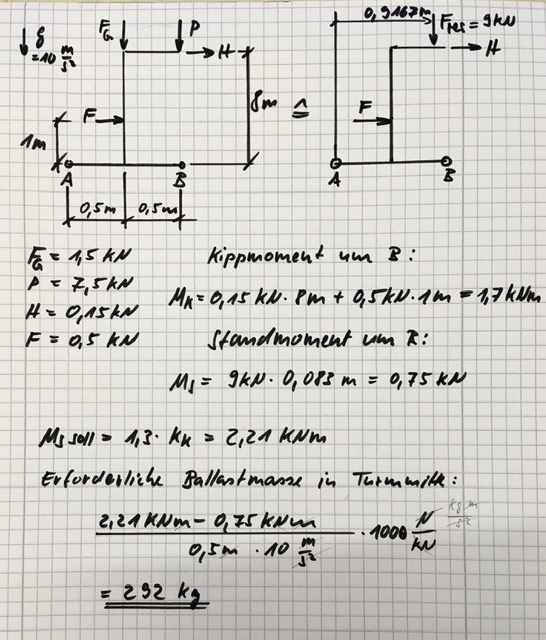 g
= 10 m/s²
F_G
P
H
F
8m
1m
A
B
0,5m
0,5m
≙
0,9167m
F_res = 9kN
H
F
A
B
F_G = 1,5 kN
P = 7,5 kN
H = 0,15 kN
F = 0,5 kN
Kippmoment um B:
M_K = 0,15 kN · 8m + 0,5 kN · 1m = 1,7 kNm
Standmoment um B:
M_S = 9kN · 0,083 m = 0,75 kN
M_S soll = 1,3 · K_K = 2,21 KNm
Erforderliche Ballastmasse in Turmmitte:
2,21 KNm – 0,75 kNm
0,5m · 10 m/s²
· 1000 N/kN
kg m/s²
= 292 kg